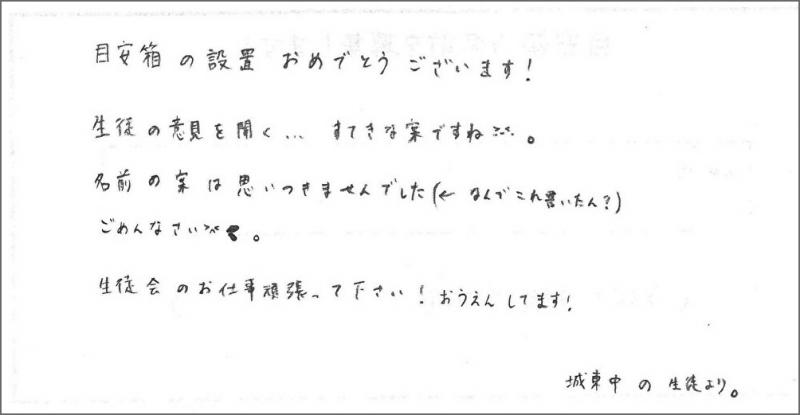 目安箱の設置おめでとうございます！
生徒の意見を聞く… すてきな案ですね。
名前の案は思いつきませんでした(← なんでこれ書いたん？)
ごめんなさい。
生徒会のお仕事頑張って下さい！おうえんしてます！
城東中の生徒より。